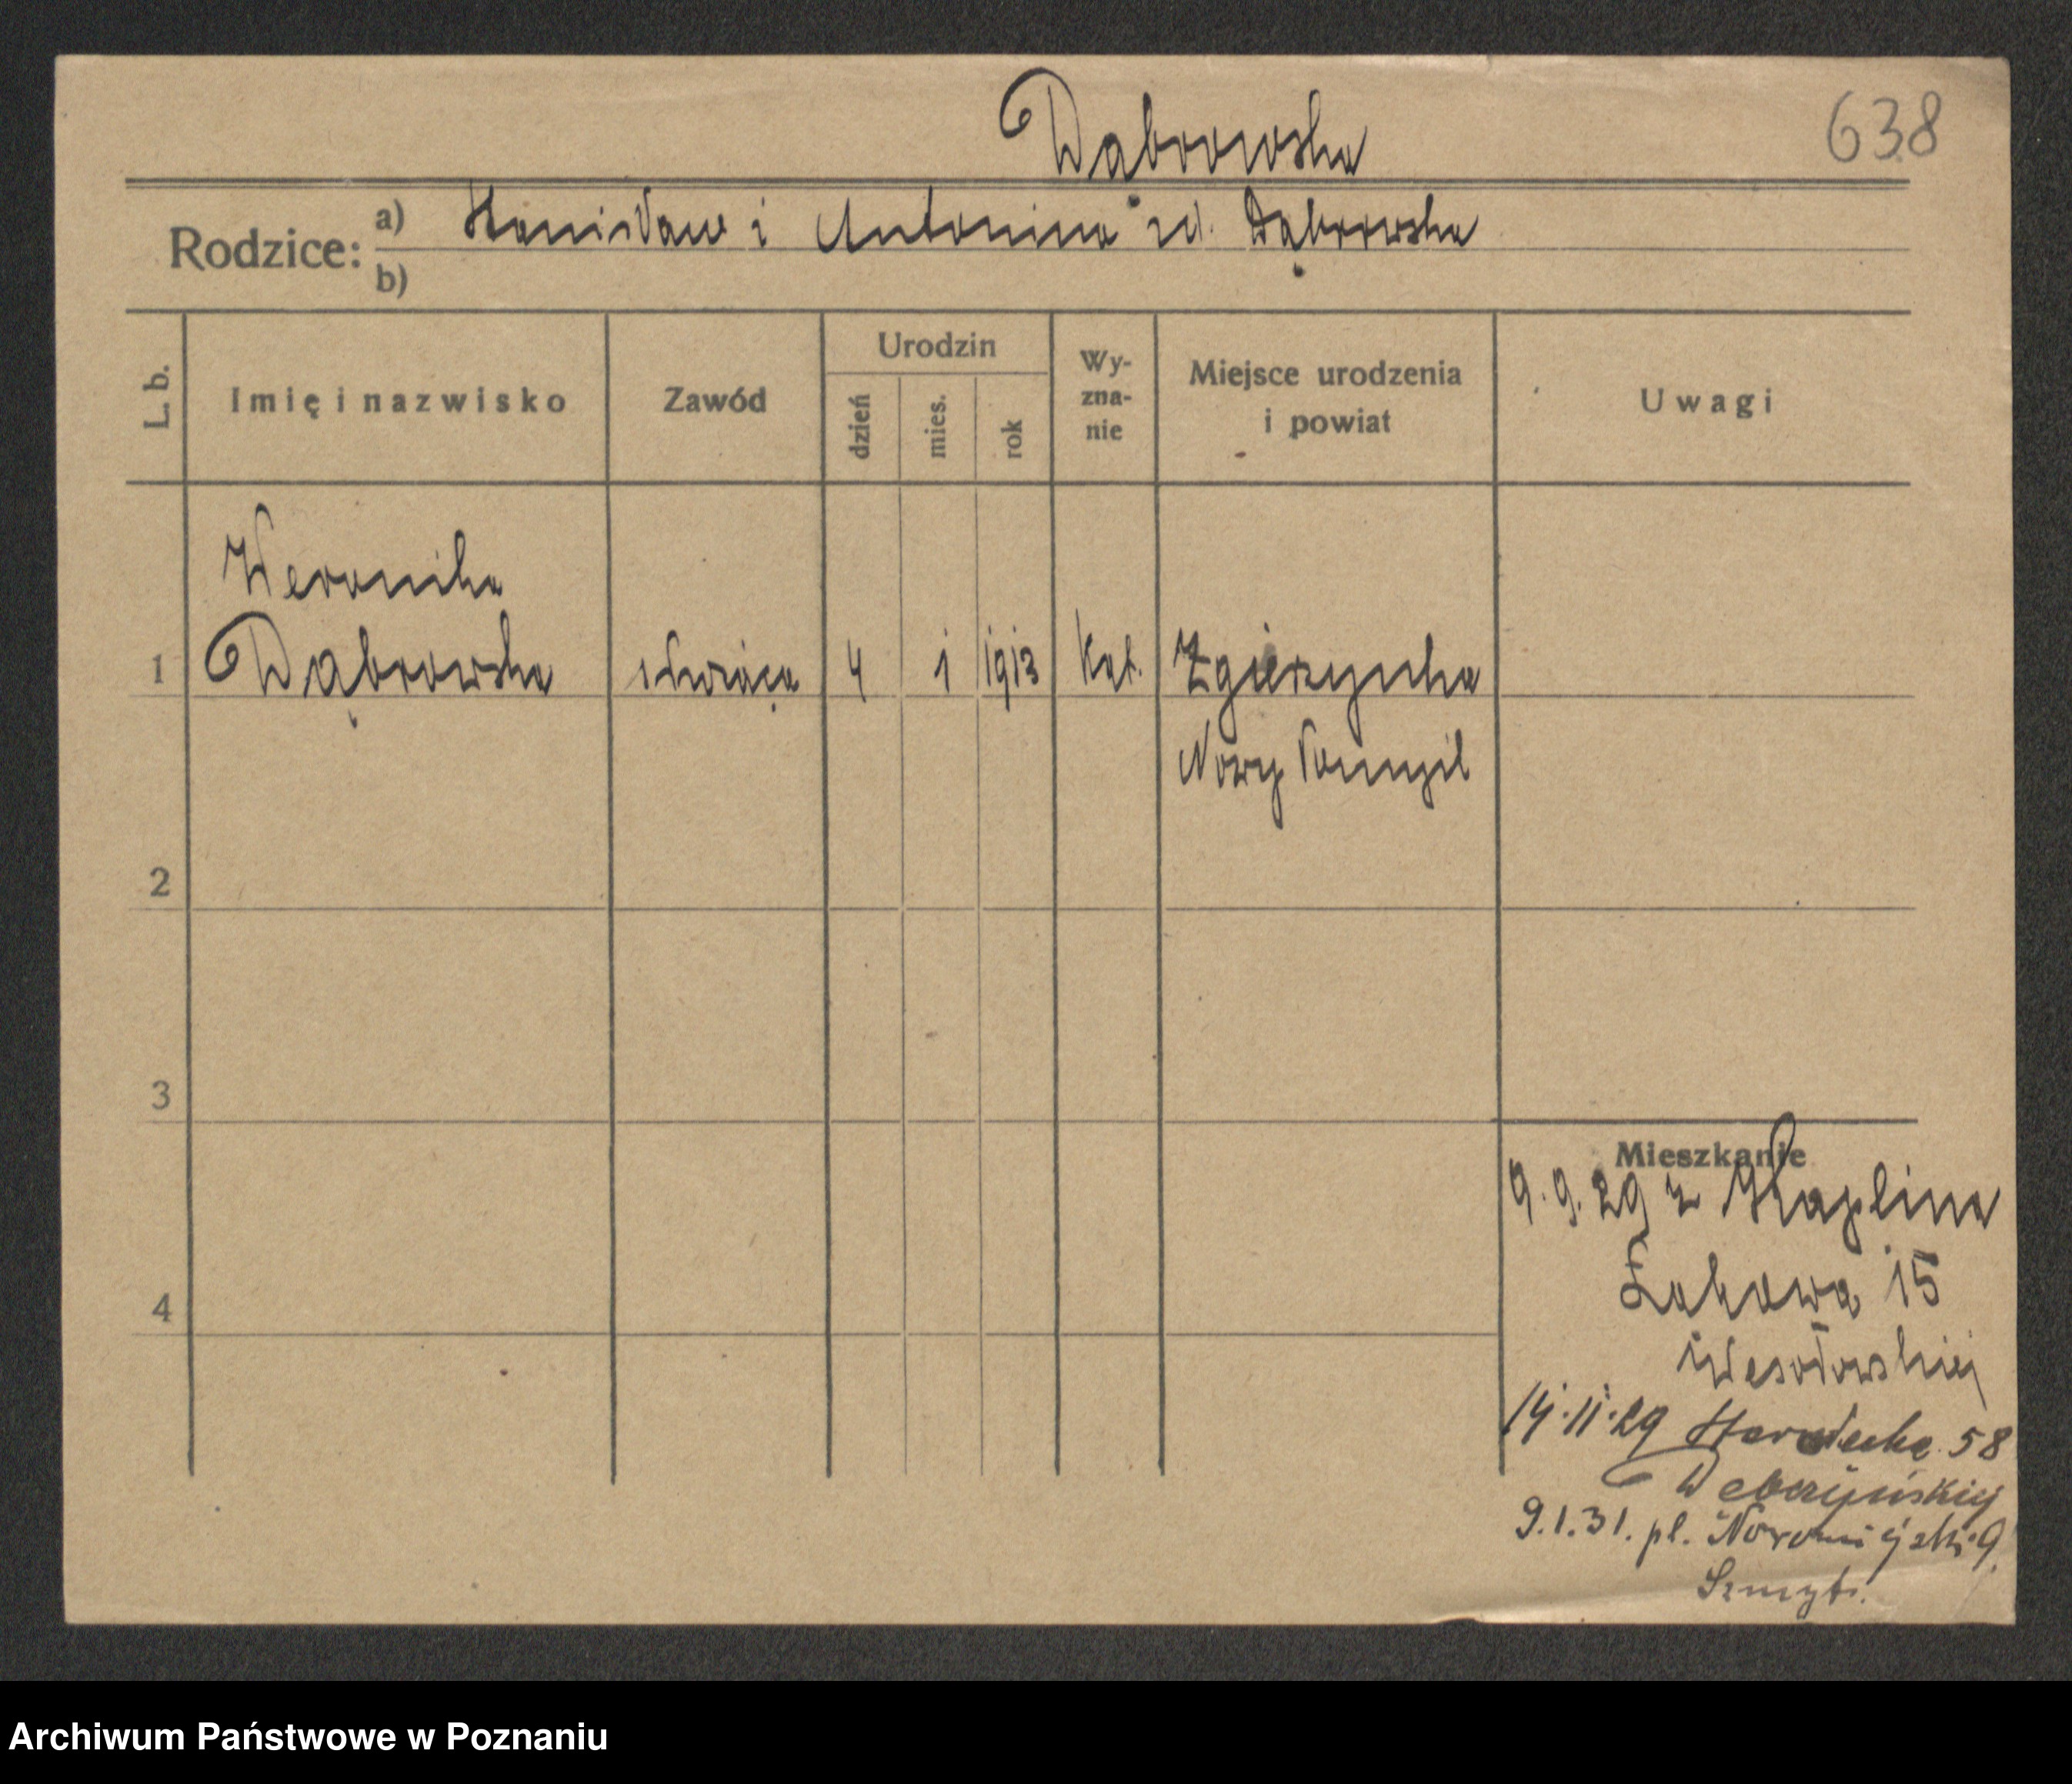 Dąbrowska
638
Rodzice: a) Stanisław i Antonina zd. Dąbrowska
b)
L. b. Imię i nazwisko Zawód Urodzin dzień mies. rok Wy-zna-nie Miejsce urodzenia i powiat Uwagi
Weronika
1 Dąbrowska służąca 4 1 1913 kat. Zgierzynka
Nowy Tomyśl
2
3
Mieszkanie
9.9.29 z
4 Łąkowa 15
Wesołowskiej
14.11.29 58
9.1.31. pl. Nowomiejski 9.
Szmyt.
Archiwum Państwowe w Poznaniu